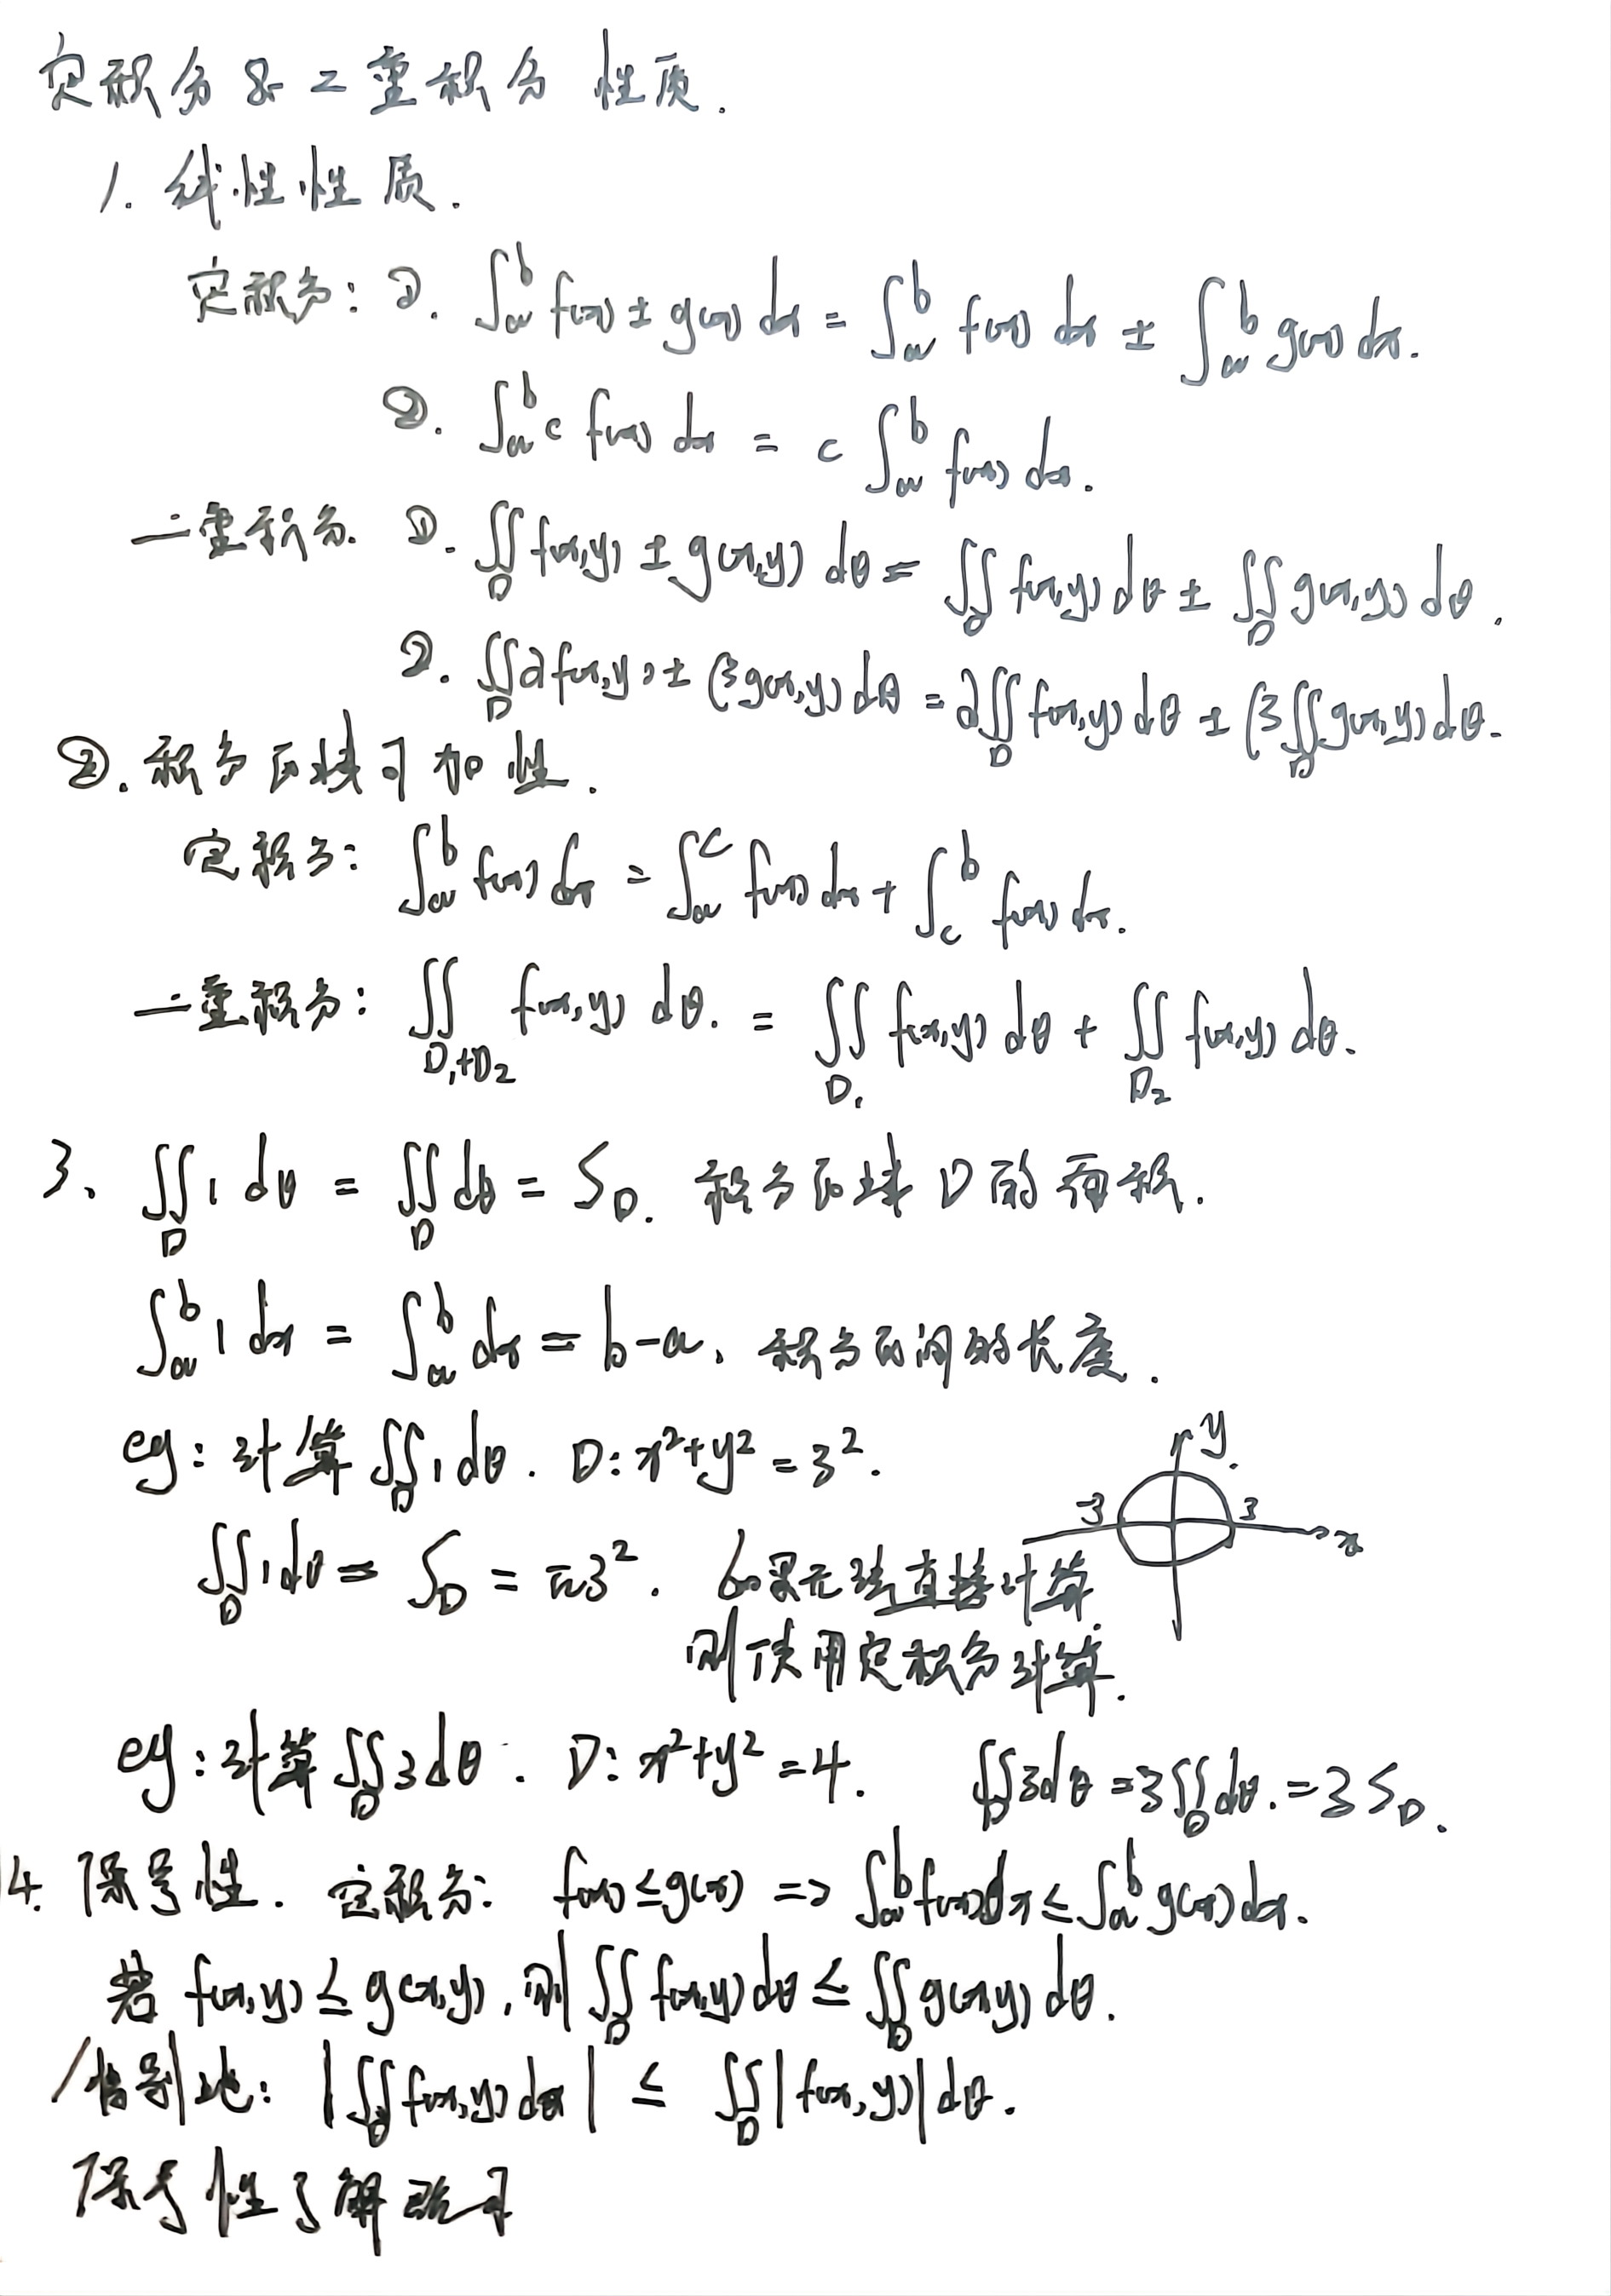 定积分 & 二重积分 性质.
1. 线性性质.
定积分: ①. ∫_a^b f(x) ± g(x) dx = ∫_a^b f(x) dx ± ∫_a^b g(x) dx.
②. ∫_a^b c f(x) dx = c ∫_a^b f(x) dx.
二重积分. ①. ∬_D f(x,y) ± g(x,y) dθ = ∬_D f(x,y) dθ ± ∬_D g(x,y) dθ.
②. ∬_D ∂f(x,y) ± βg(x,y) dθ = ∂∬_D f(x,y) dθ ± β∬_D g(x,y) dθ.
②. 积分区域可加性.
定积分: ∫_a^b f(x) dx = ∫_a^c f(x) dx + ∫_c^b f(x) dx.
二重积分: ∬_{D₁+D₂} f(x,y) dθ. = ∬_{D₁} f(x,y) dθ + ∬_{D₂} f(x,y) dθ.
3、 ∬_D 1 dθ = ∬_D dθ = S_D. 积分区域 D 的面积.
∫_a^b 1 dx = ∫_a^b dx = b-a、积分区间的长度.
eg: 计算 ∬_D 1 dθ. D: x²+y²=3².
y.
-3 3 x
∬_D 1 dθ = S_D = π3². 如果无法直接计算.
则使用定积分计算.
eg: 计算 ∬_D 3 dθ. D: x²+y²=4. ∬_D 3dθ = 3∬_D dθ. = 3 S_D.
4. 保号性. 定积分: f(x) ≤ g(x) => ∫_a^b f(x) dx ≤ ∫_a^b g(x) dx.
若 f(x,y) ≤ g(x,y), 则 ∬_D f(x,y) dθ ≤ ∬_D g(x,y) dθ.
特别地: |∬_D f(x,y) dθ| ≤ ∬_D |f(x,y)| dθ.
保号性了解即可